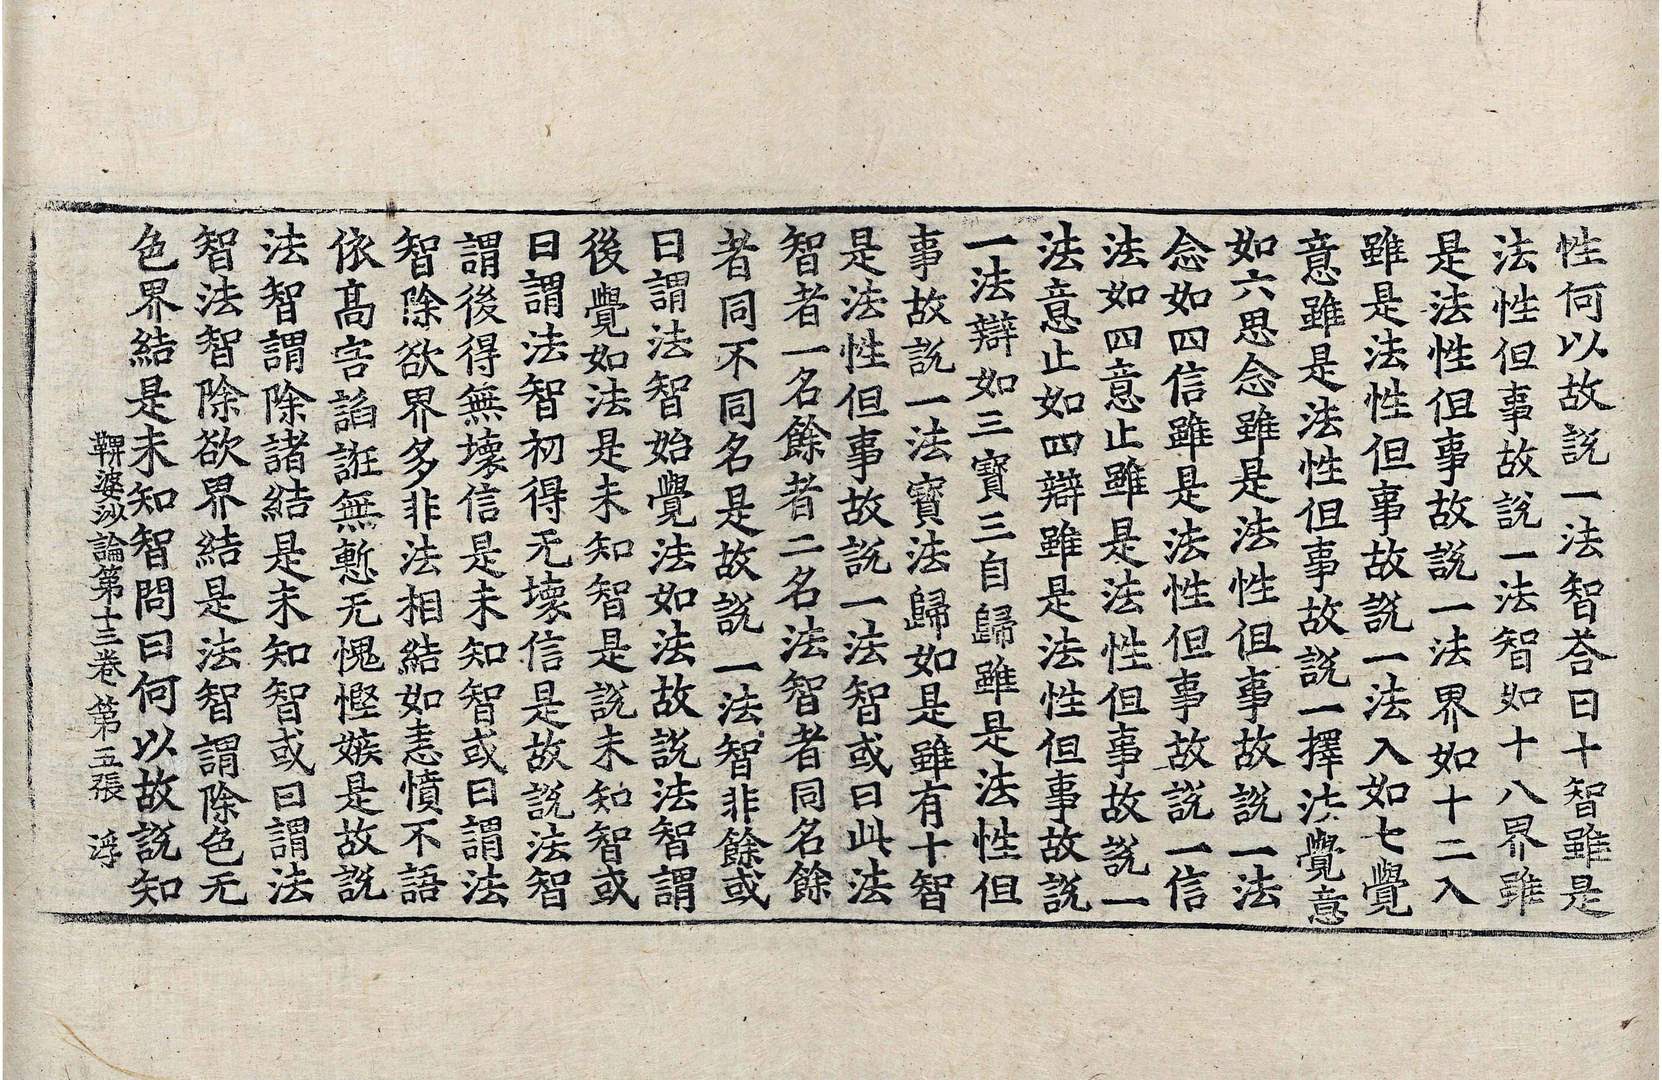 性何以故説一法智荅曰十智雖是
法性但事故說一法智如十八界雖
是法性但事故説一法界如十二入
雖是法性但事故説一法入如七覺
意雖是法性但事故説一擇法覺意
如六思念雖是法性但事故説一法
念如四信雖是法性但事故説一信
法如四意止雖是法性但事故説一
法意止如四辯雖是法性但事故説
一法辯如三寶三自歸雖是法性但
事故説一法寶法歸如是雖有十智
是法性但事故説一法智或曰此法
智者一名餘者二名法智者同名餘
者同不同名是故説一法智非餘或
曰謂法智始覺法如法故説法智謂
後覺如法是未知智是説未知智或
曰謂法智初得无壞信是故説法智
謂後得無壞信是未知智或曰謂法
智除欲界多非法相結如恚憤不語
依高害諂誑無慙无愧慳嫉是故説
法智謂除諸結是未知智或曰謂法
智法智除欲界結是法智謂除色无
色界結是未知智問曰何以故説知
鞞婆沙論第十三卷 第五張 浮